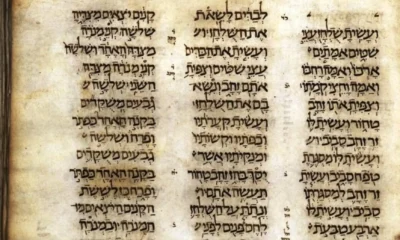 ועשית שלחן עצי
שטים אמתים
ארכו ואמה רחבו
ואמה וחצי קמתו
וצפית אתו זהב
טהור ועשית לו
זר זהב סביב
ועשית לו מסגרת
טפח סביב ועשית
זר זהב למסגרתו
סביב ועשית לו
ארבע טבעת
לבדים לשאת
את השלחן
ועשית את הבדים
עצי שטים וצפית
אתם זהב ונשא
בם את השלחן
ועשית קערתיו
וכפתיו וקשותיו
ומנקיתיו אשר
יסך בהן זהב טהור
תעשה אתם
ונתת על השלחן
קנים יצאים מצדיה
שלשה קני מנרה
מצדה האחד ושלשה
קני מנרה מצדה
השני שלשה
גבעים משקדים
בקנה האחד כפתר
ופרח ושלשה
גבעים משקדים
בקנה האחד כפתר
ופרח כן לששת
הקנים היצאים מן
המנרה ובמנרה